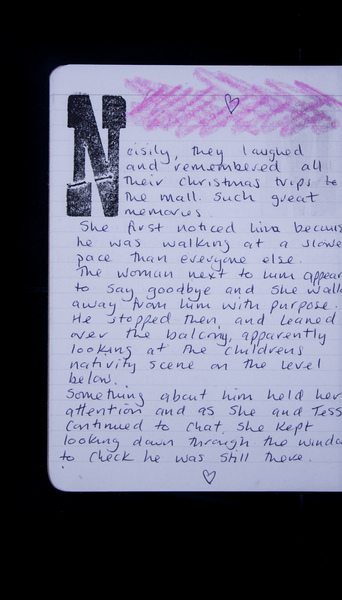 Noisily, they laughed
and remembered all
their Christmas trips to
the mall. Such great
memories.
She first noticed him because
he was walking at a slower
pace than everyone else.
The woman next to him appear
to say goodbye and she walk
away from him with purpose.
He stopped then, and leaned
over the balcony, apparently
looking at the childrens
nativity scene on the level
below.
Something about him held her
attention and as she and Tess
continued to chat, she kept
looking down through the windo
to check he was still there.